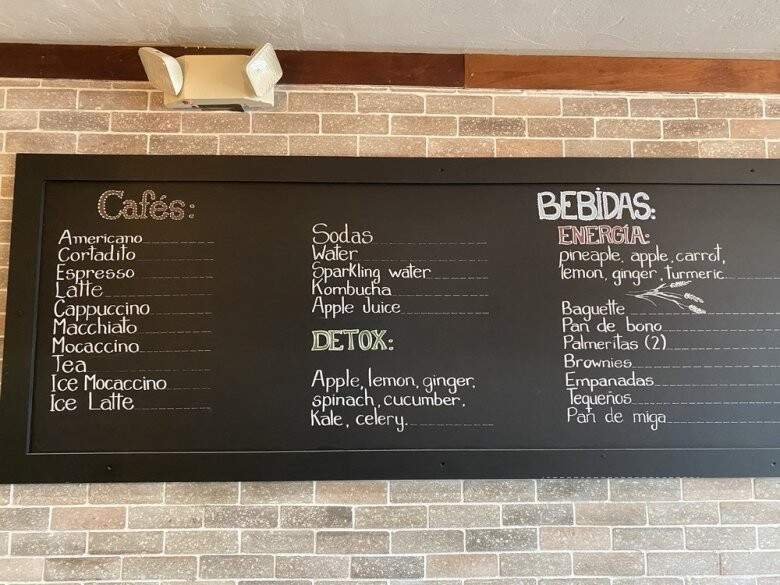 Cafés:
Americano
Cortadito
Espresso
Latte
Cappuccino
Macchiato
Mocaccino
Tea
Ice Mocaccino
Ice Latte
Sodas
Water
Sparkling water
Kombucha
Apple Juice
DETOX:
Apple, lemon, ginger,
spinach, cucumber,
Kale, celery.
BEBIDAS:
ENERGÍA:
pineaple, apple, carrot,
lemon, ginger, turmeric
Baguette
Pan de bono
Palmeritas (2)
Brownies
Empanadas
Tequeños
Pan de miga